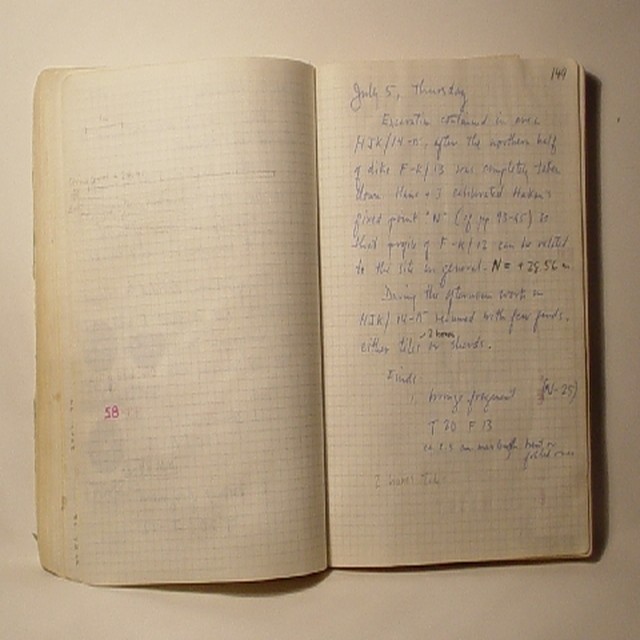 58
149
July 5, Thursday
Excavation continued in area
HJK/14-15, after the northern half
of dike F-K/13 was completely taken
down. Hans + I calibrated
fixed point "N" (cf pp 93-65) so
that profile of F-K/13 can be related
to the site in general. N = +28.56 m
During the afternoon work in
HJK/14-15 resumed with few finds,
either tiles or sherds.
Finds:
1. bronze fragment (N-25)
T 20 F 13
ca 2.5 cm max length, bent or
folded over
2